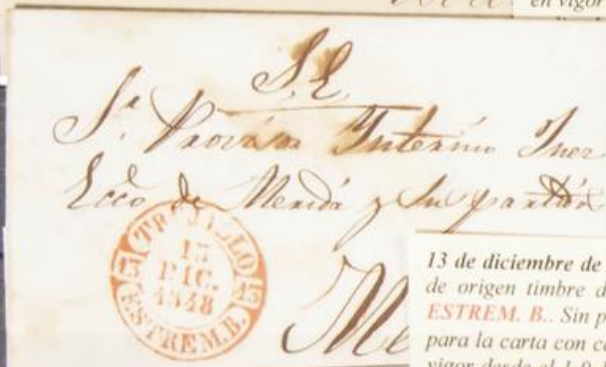 en vigor
S. E.
Sr. Provisor Interino Juez
Ecco de Merida y su partido
TRUJILLO
13
DIC.
1848
ESTREM.B.
13 de diciembre de
de origen timbre d
ESTREM. B.. Sin p
para la carta con c
vigor desde el 1.9.1